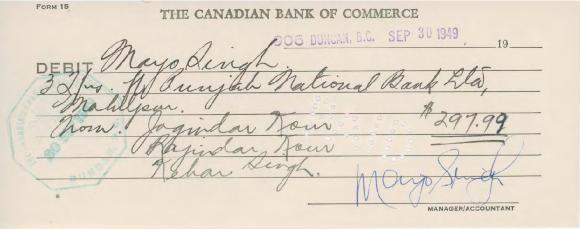 FORM 15
THE CANADIAN BANK OF COMMERCE
905 DUNCAN, B.C. SEP 30 1949 19
DEBIT Mayo Singh
3 Dfts. Punjab National Bank Ltd,
Mahilpur.
Nom. Jogindar Kour $297.99
Rajindar Kour
Kehar Singh.
Mayo Singh
MANAGER/ACCOUNTANT